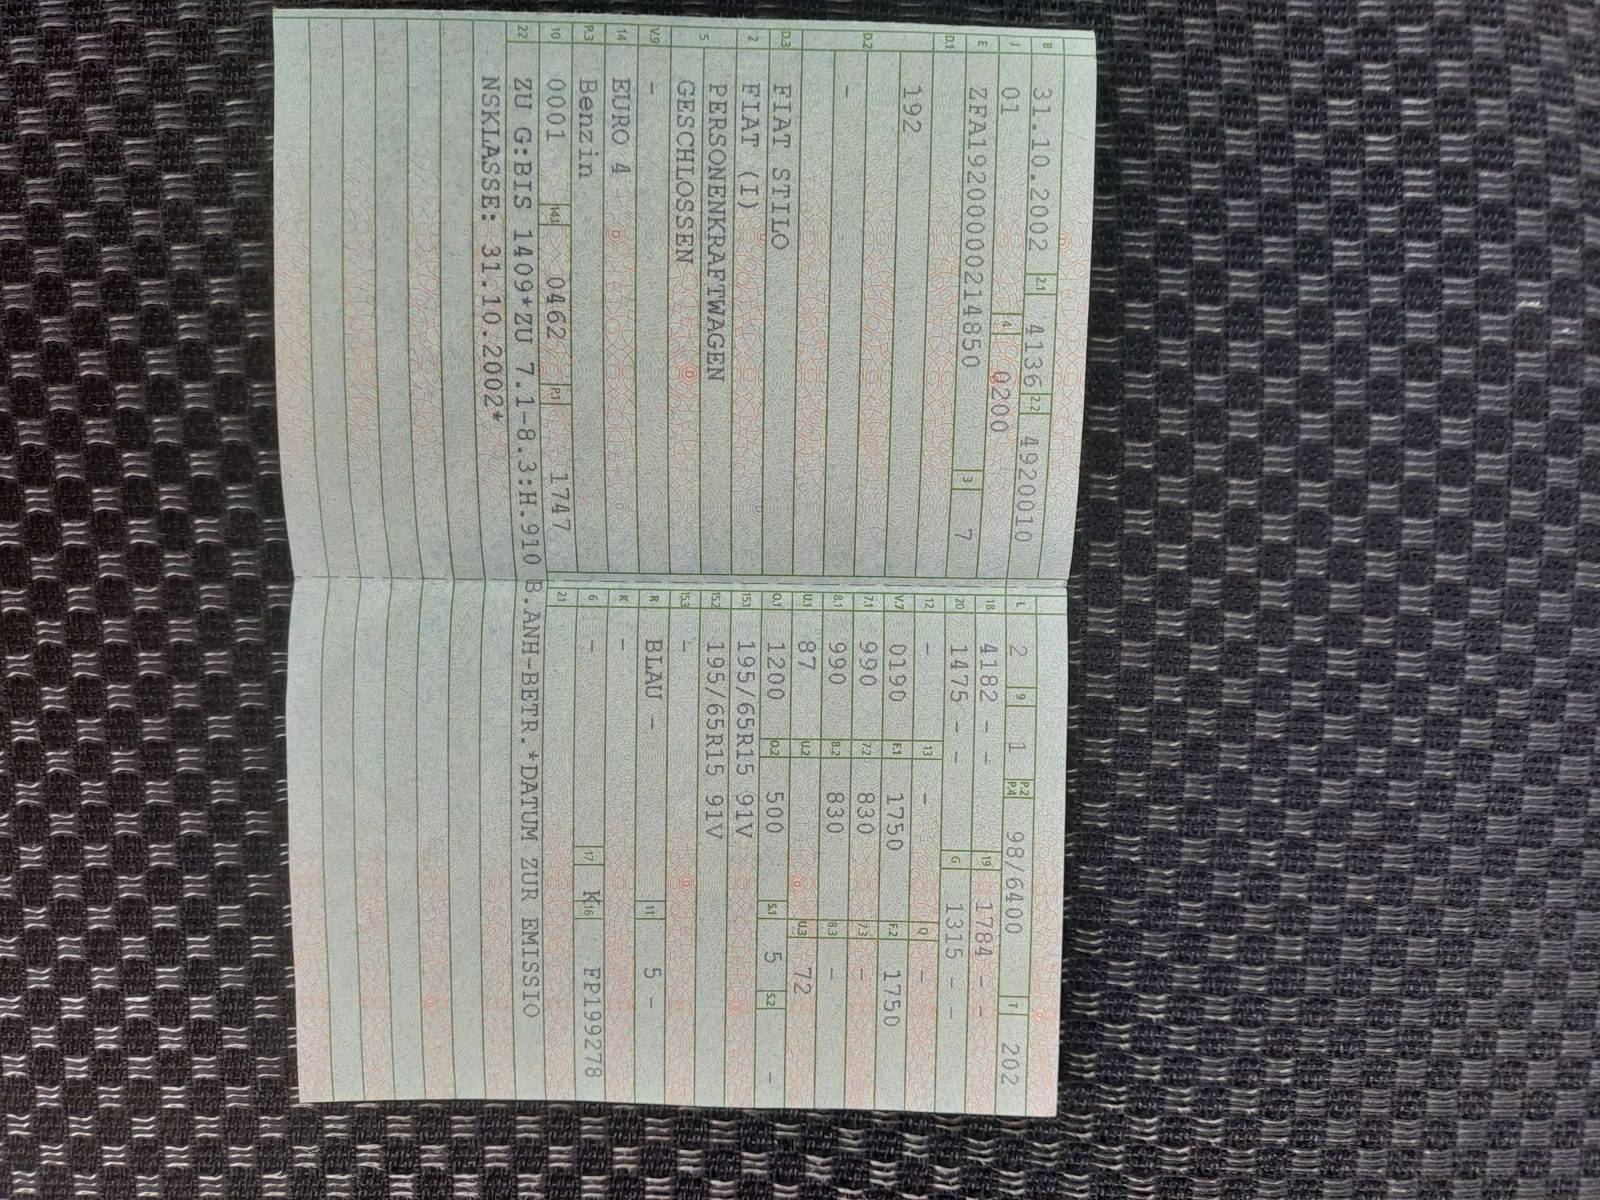 B 31.10.2002 2.1 4136 2.2 4920010
J 01 4 0200
E ZFA19200000214850 3 7
D.1
192
D.2
-
D.3 FIAT STILO
2 FIAT (I)
5 PERSONENKRAFTWAGEN
GESCHLOSSEN
V.9 -
14 EURO 4
P.3 Benzin
10 0001 14.1 0462 P.1 1747
L 2 9 1 P.2 P.4 98/6400 T 202
18 4182 - - 19 1784 - -
20 1475 - - G 1315 - -
12 - 13 - Q -
V.7 0190 F.1 1750 F.2 1750
7.1 990 7.2 830 7.3 -
8.1 990 8.2 830 8.3 -
U.1 87 U.2 U.3 72
O.1 1200 O.2 500 S.1 5 S.2 -
15.1 195/65R15 91V
15.2 195/65R15 91V
15.3 -
R BLAU - 11 5 -
K -
6 - 17 K 16 FP199278
21
22 ZU G:BIS 1409*ZU 7.1-8.3:H.910 B.ANH-BETR.*DATUM ZUR EMISSIO
NSKLASSE: 31.10.2002*